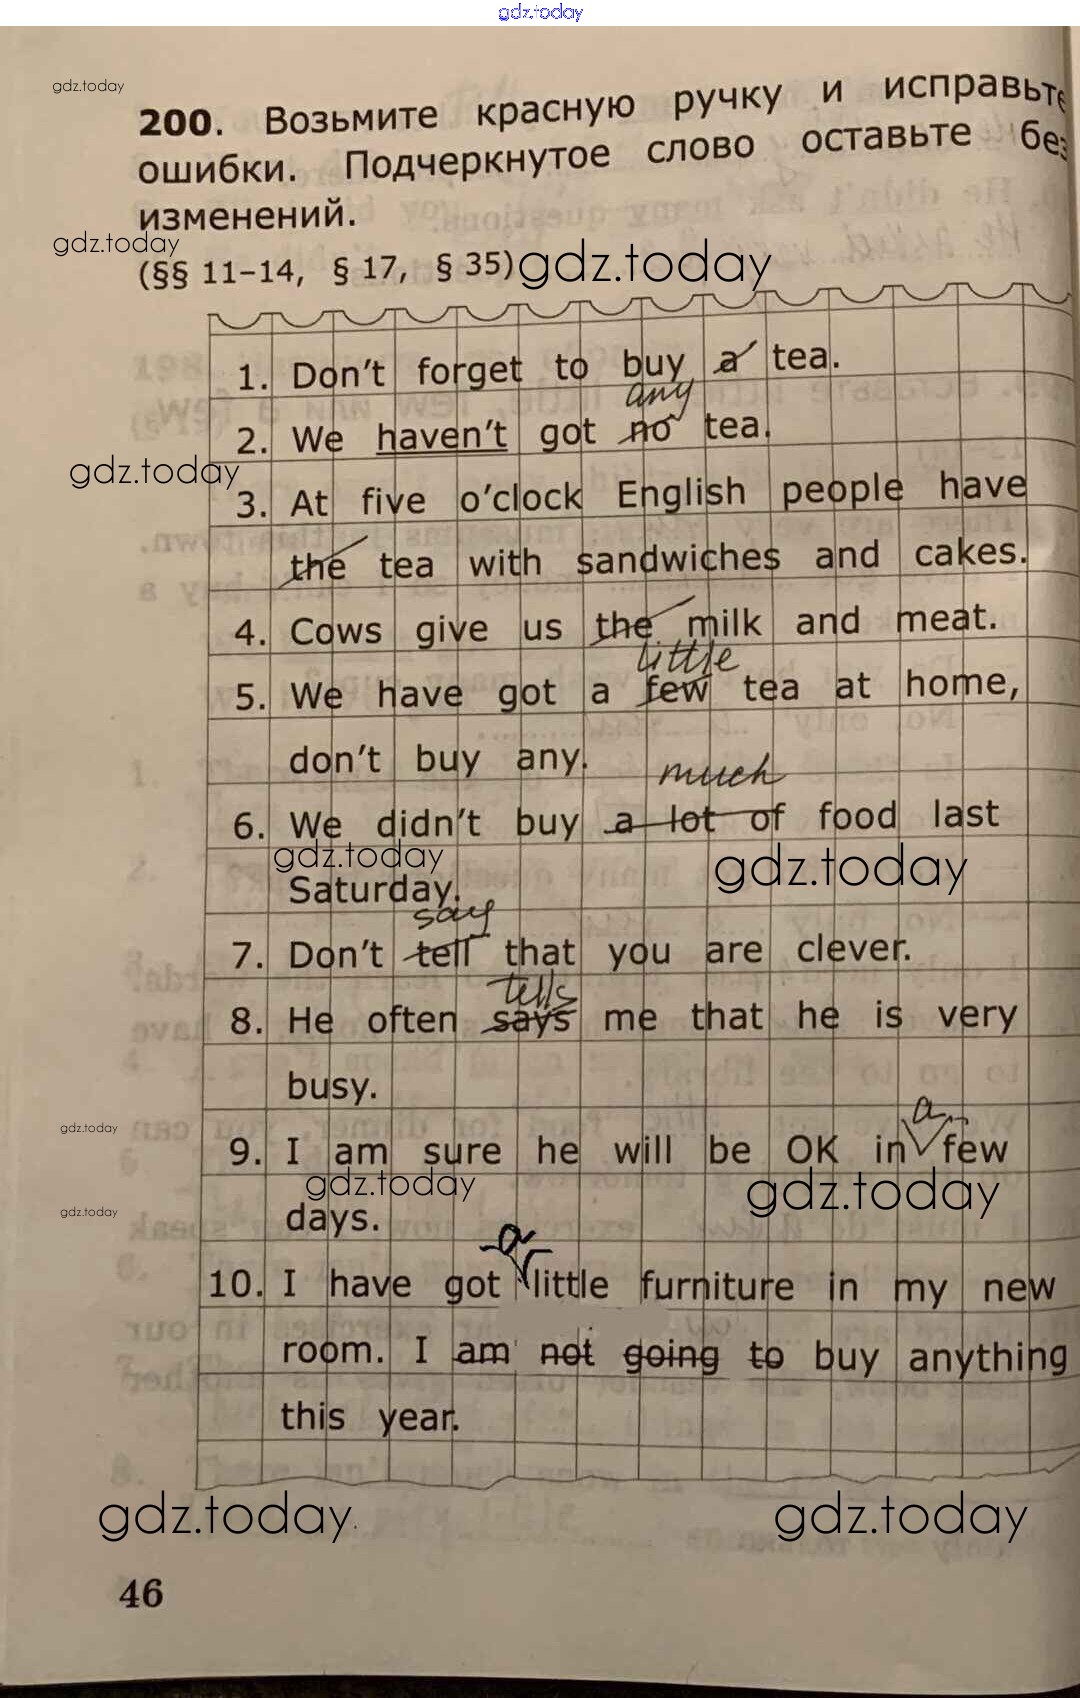 gdz.today
gdz.today
200. Возьмите красную ручку и исправьте
ошибки. Подчеркнутое слово оставьте без
изменений.
gdz.today
(§§ 11–14, § 17, § 35) gdz.today
1. Don't forget to buy a tea.
any
2. We haven't got no tea.
gdz.today
3. At five o'clock English people have
the tea with sandwiches and cakes.
4. Cows give us the milk and meat.
little
5. We have got a few tea at home,
don't buy any.
much
6. We didn't buy a lot of food last
gdz.today gdz.today
Saturday.
say
7. Don't tell that you are clever.
tells
8. He often says me that he is very
busy.
a
gdz.today
9. I am sure he will be OK in few
gdz.today gdz.today
days.
gdz.today
a
10. I have got little furniture in my new
room. I am not going to buy anything
this year.
gdz.today gdz.today
46